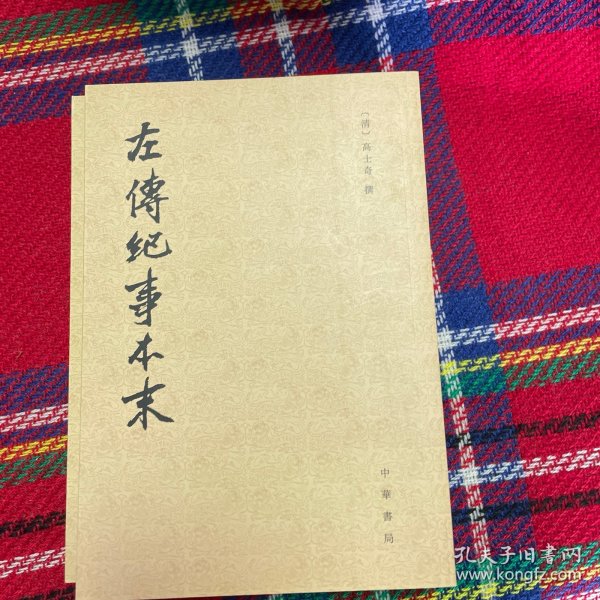 〔清〕高士奇 撰
左傳紀事本末
中華書局
孔夫子旧书网
www.kongfz.com